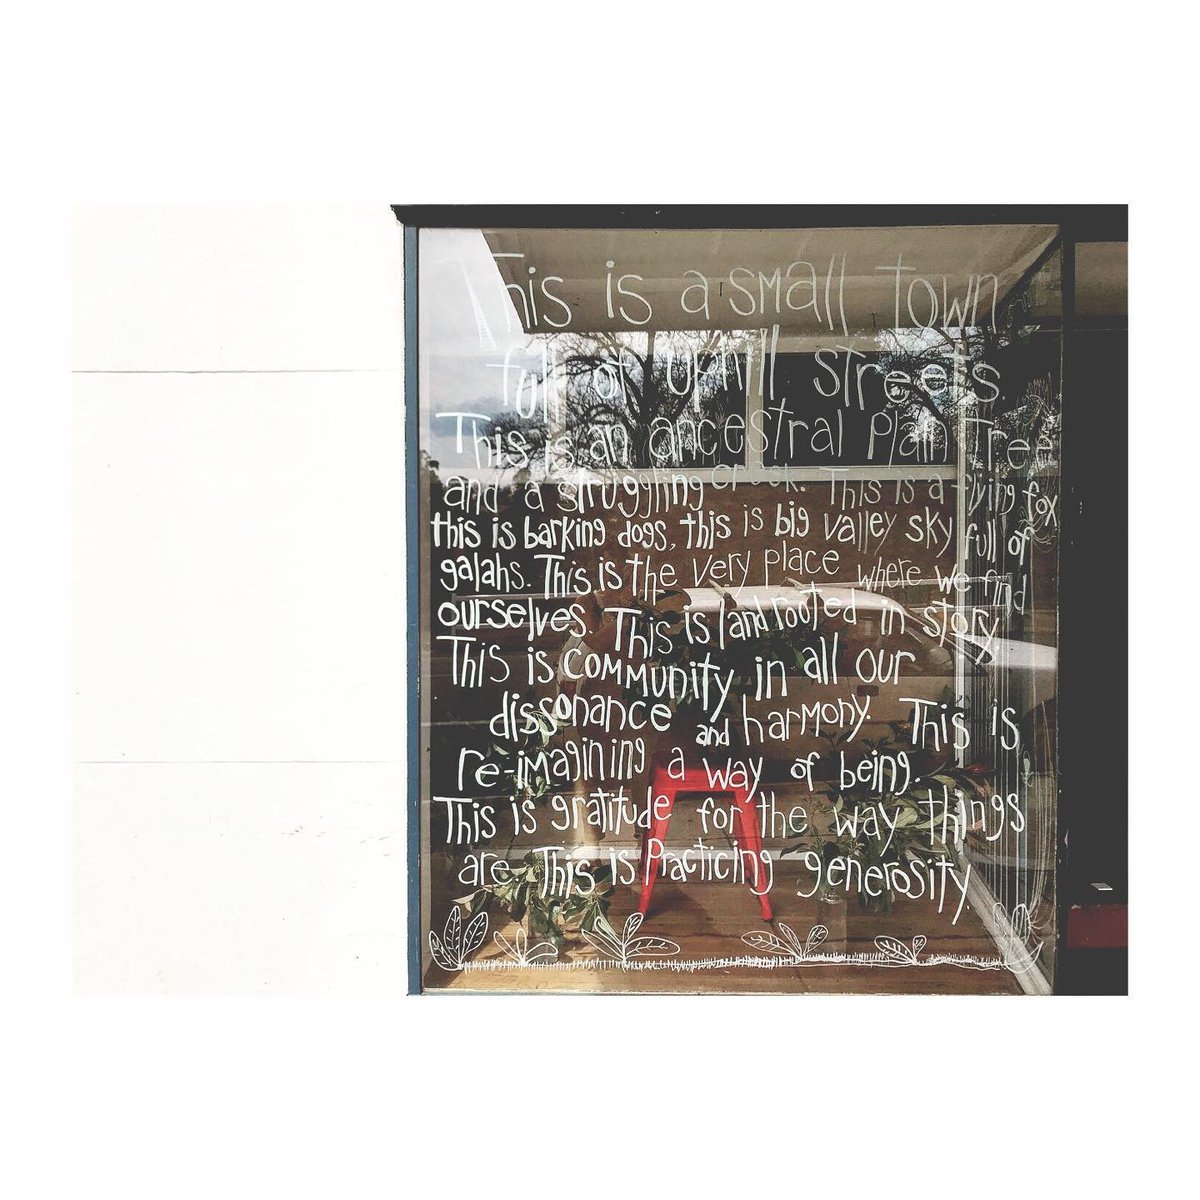 This is a small town
full of uphill streets.
This is an ancestral Plain Tree
and a struggling creek. This is a flying fox
this is barking dogs, this is big valley sky full of
galahs. This is the very place where we find
ourselves. This is land rooted in story.
This is community in all our
dissonance and harmony. This is
re-imagining a way of being.
This is gratitude for the way things
are. This is Practicing generosity.